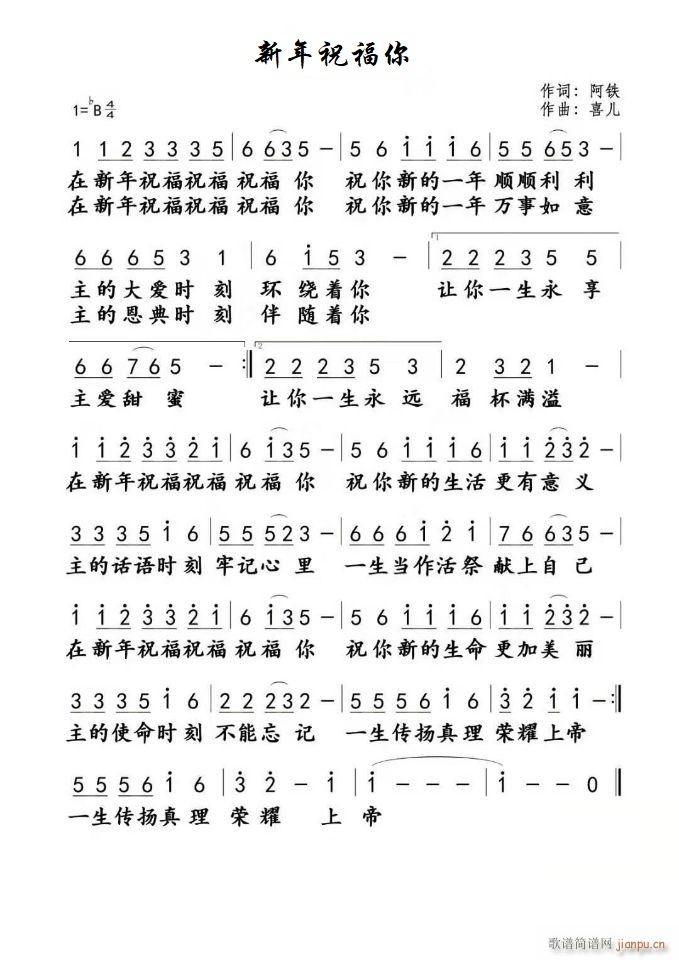 新年祝福你
作词：阿铁
1=♭B 4/4 作曲：喜儿
1 1 2 3 3 3 5 | 6 6 3 5 － | 5 6 i i i 6 | 5 5 6 5 3 － |
在新年祝福祝福祝福 你 祝你新的一年 顺顺利 利
在新年祝福祝福祝福 你 祝你新的一年 万事如 意
6 6 6 5 3 1 | 6 i 5 3 － | 1. 2 2 2 3 5 5 5 |
主的大爱时 刻 环 绕着你 让你一生永 享
主的恩典时 刻 伴 随着你
6 6 7 6 5 － :| 2. 2 2 2 3 5 3 | 2 3 2 1 － |
主爱甜 蜜 让你一生永 远 福 杯满溢
i i 2 3 3 2 i | 6 i 3 5 － | 5 6 i i i 6 | i i 2 3 2 － |
在新年祝福祝福祝福 你 祝你新的生活 更有意 义
3 3 3 5 i 6 | 5 5 5 2 3 － | 6 6 6 i 2 i | 7 6 6 3 5 － |
主的话语时刻 牢记心 里 一生当作活祭 献上自 己
i i 2 3 3 2 i | 6 i 3 5 － | 5 6 i i i 6 | i i 2 3 2 － |
在新年祝福祝福祝福 你 祝你新的生命 更加美 丽
3 3 3 5 i 6 | 2 2 2 3 2 － | 5 5 5 6 i 6 | 3 2 i i － :|
主的使命时刻 不能忘 记 一生传扬真理 荣耀上帝
5 5 5 6 i 6 | 3 2 － i | i － － － | i － － 0 |
一生传扬真理 荣 耀 上 帝
歌谱简谱网 jianpu.cn